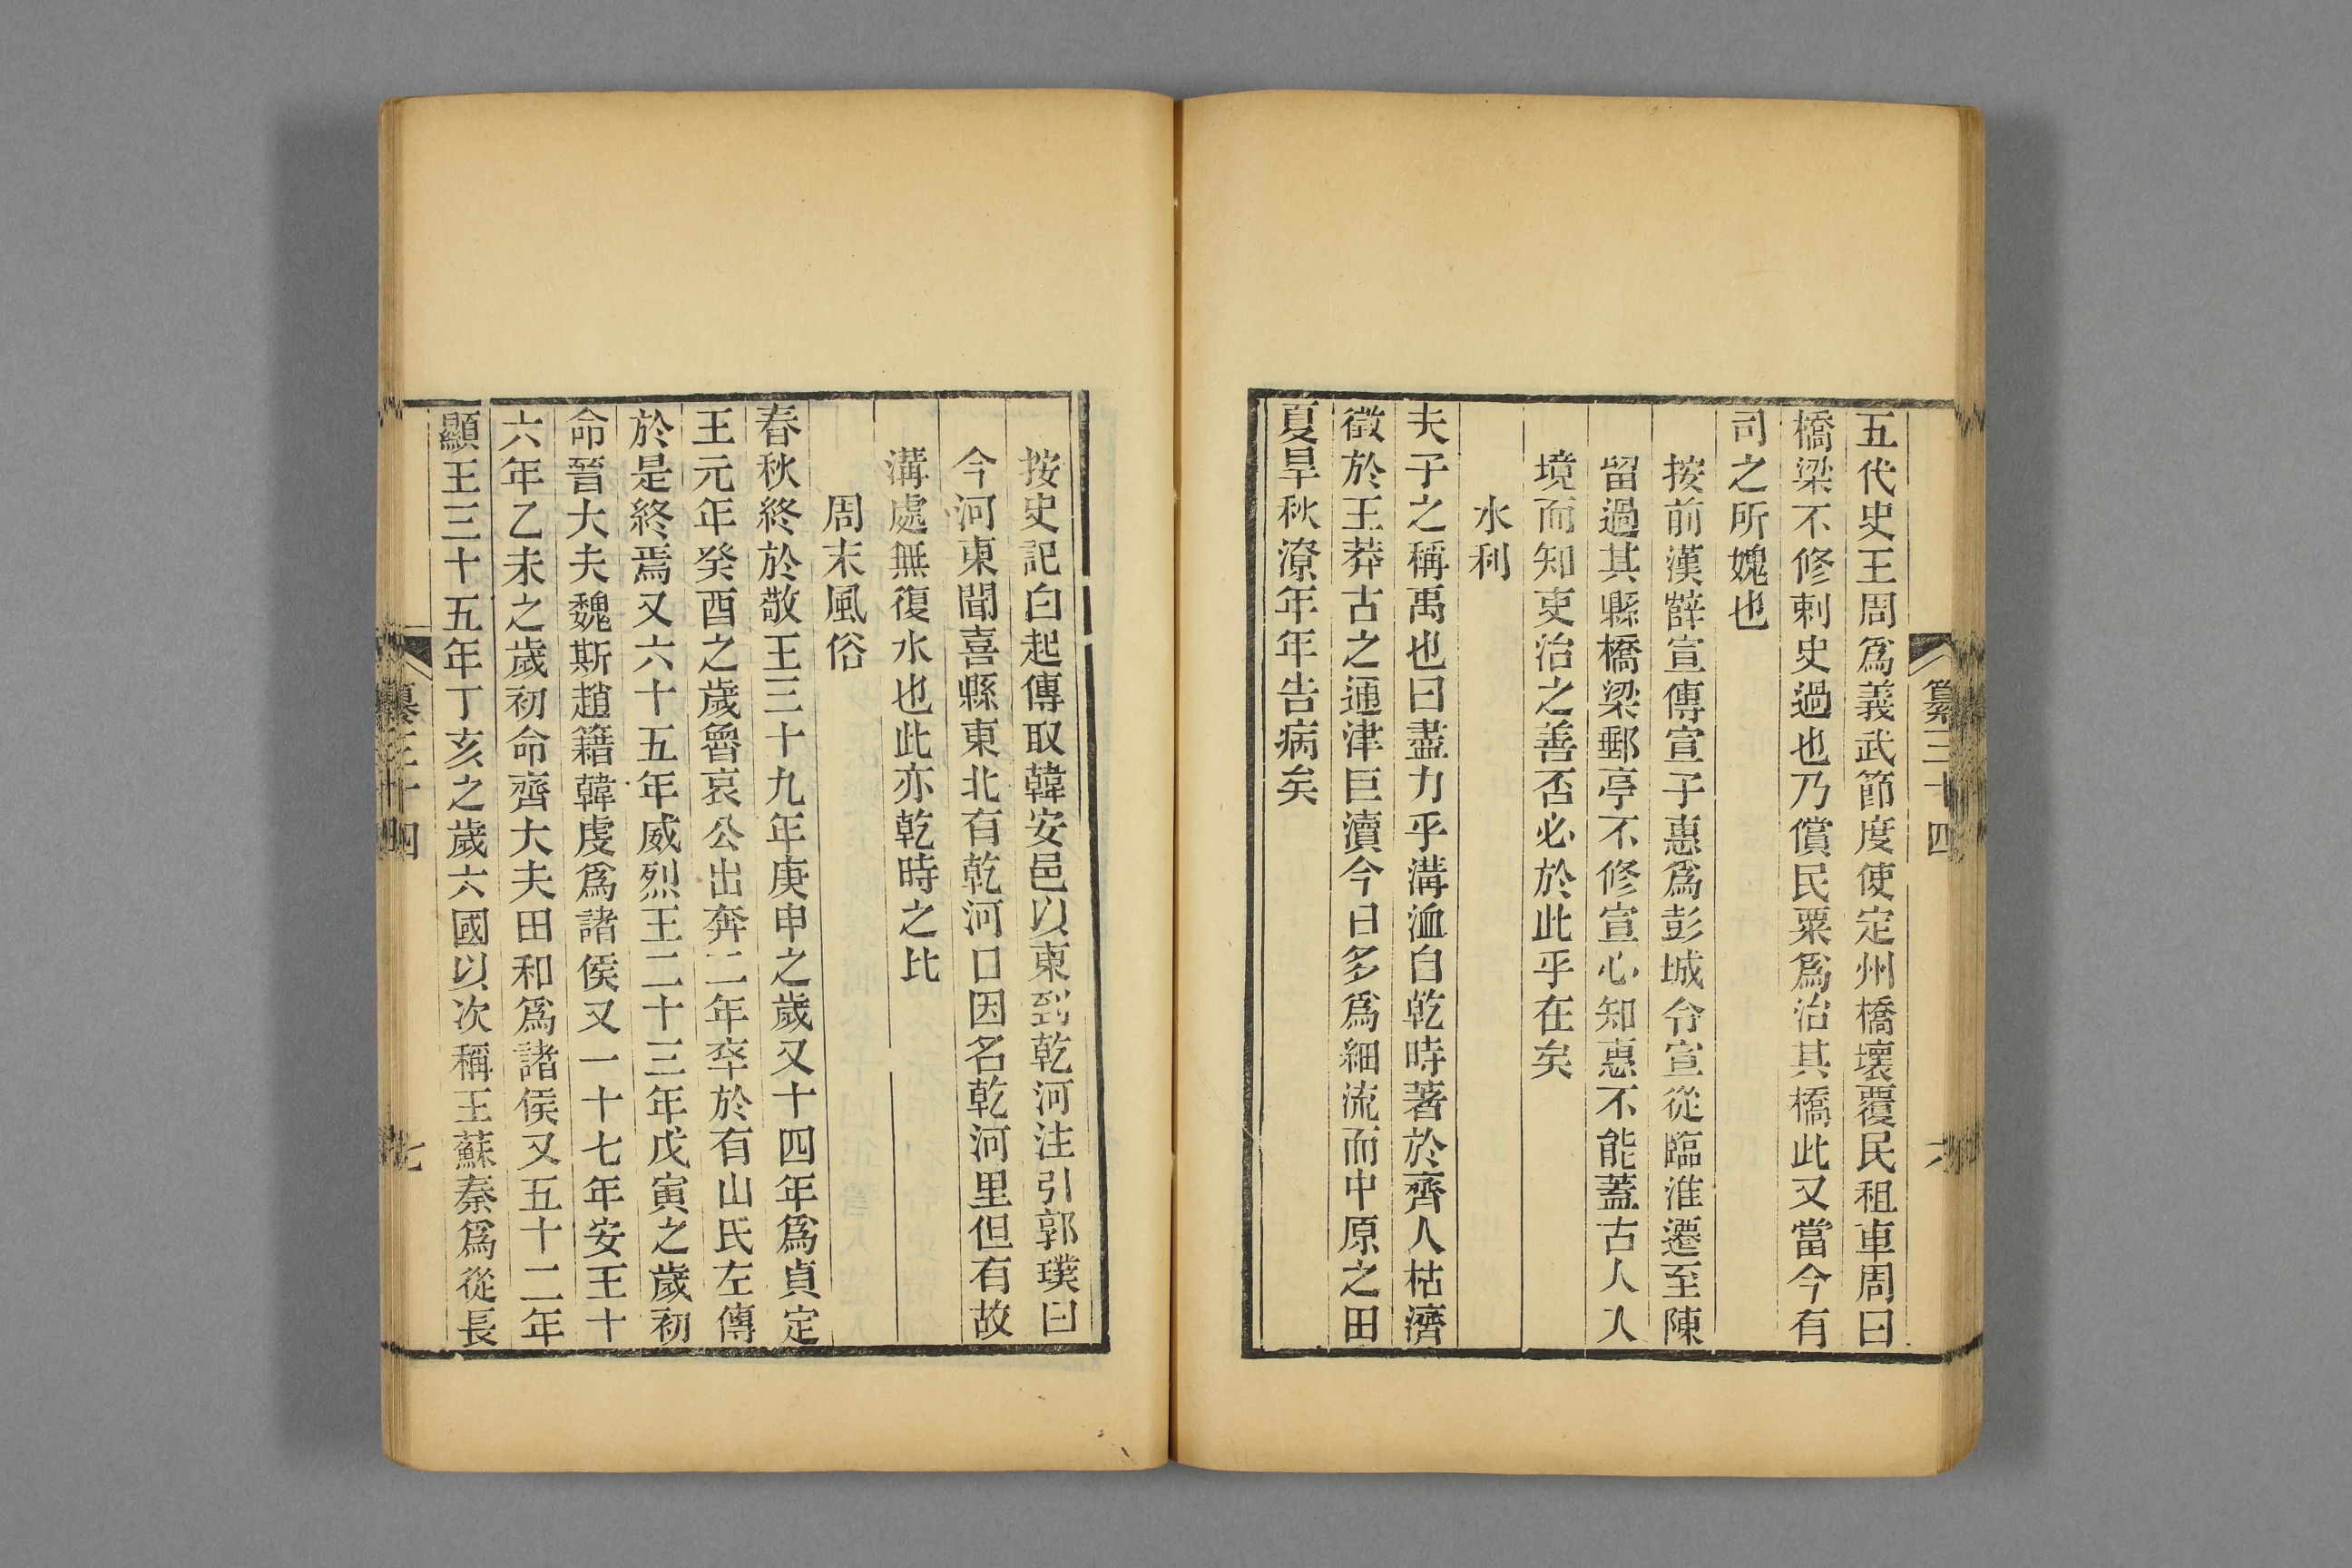 纂三十四
六
五代史王周爲義武節度使定州橋壞覆民租車周曰
橋梁不修刺史過也乃償民粟爲治其橋此又當今有
司之所媿也
按前漢薛宣傳宣子惠爲彭城令宣從臨淮遷至陳
留過其縣橋梁郵亭不修宣心知惠不能蓋古人入
境而知吏治之善否必於此乎在矣
水利
夫子之稱禹也曰盡力乎溝洫自乾時著於齊人枯濟
徵於王莽古之通津巨瀆今日多爲細流而中原之田
夏旱秋潦年年告病矣
按史記白起傳取韓安邑以東到乾河注引郭璞曰
今河東聞喜縣東北有乾河口因名乾河里但有故
溝處無復水也此亦乾時之比
周末風俗
春秋終於敬王三十九年庚申之歲又十四年爲貞定
王元年癸酉之歲魯哀公出奔二年卒於有山氏左傳
於是終焉又六十五年威烈王二十三年戊寅之歲初
命晉大夫魏斯趙籍韓虔爲諸侯又一十七年安王十
六年乙未之歲初命齊大夫田和爲諸侯又五十二年
顯王三十五年丁亥之歲六國以次稱王蘇秦爲從長
纂三十四
七